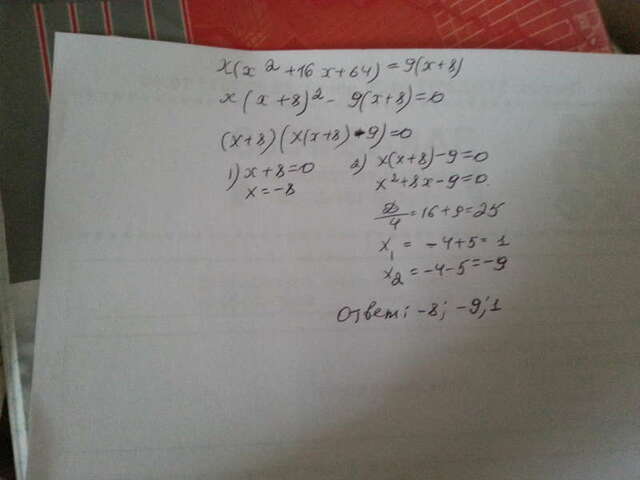 x(x² + 16x + 64) = 9(x+8)
x(x+8)² - 9(x+8) = 0
(x+8)(x(x+8) - 9) = 0
1) x+8=0
x=-8
2) x(x+8)-9=0
x²+8x-9=0.
D/4 = 16+9=25
x₁ = -4+5=1
x₂ = -4-5=-9
Ответ: -8; -9; 1